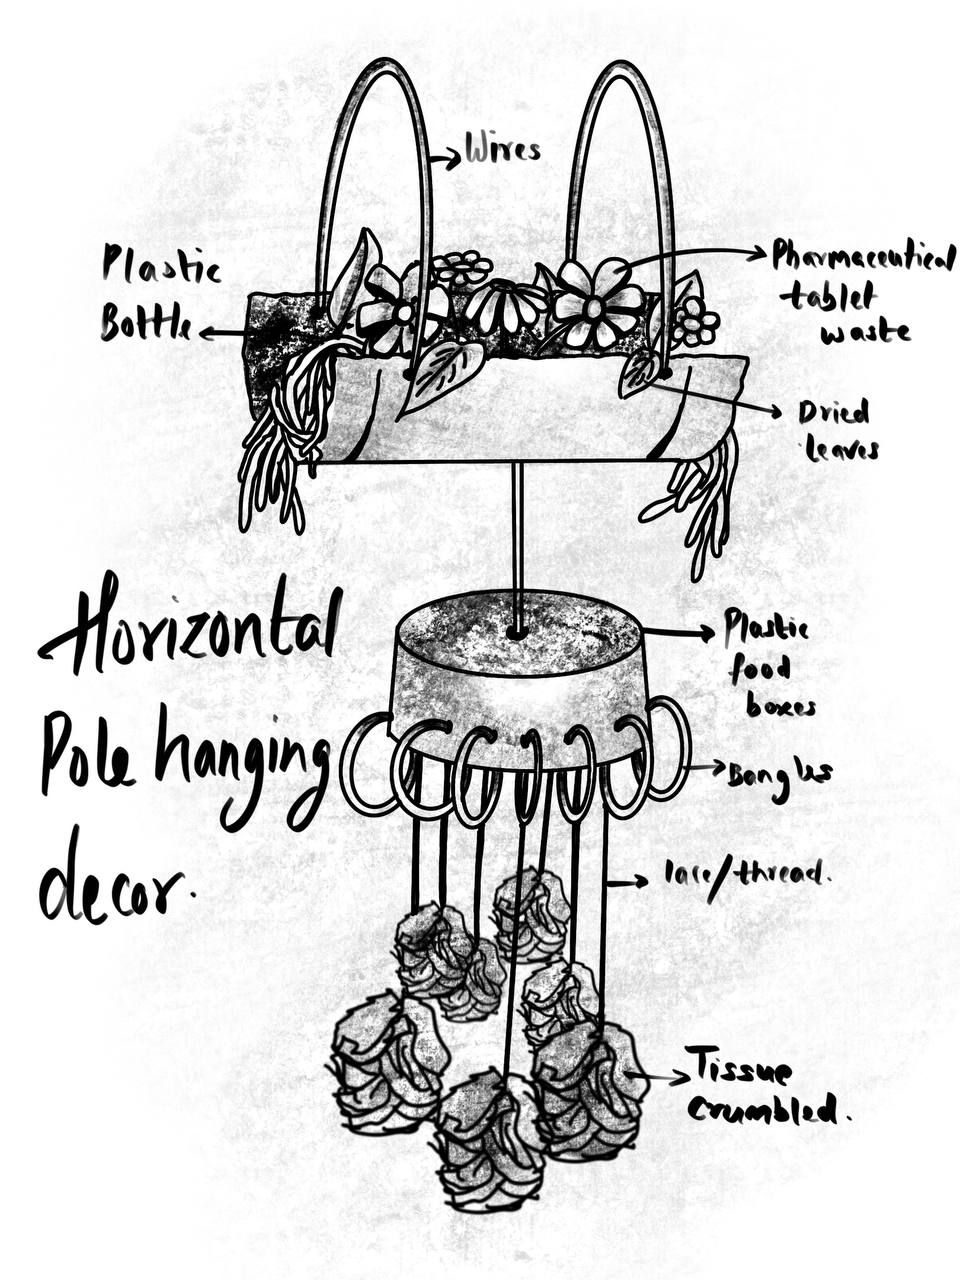 Wires
Plastic
Bottle
Pharmaceutical
tablet
waste
Dried
leaves
Horizontal
Pole hanging
decor.
Plastic
food
boxes
Bangles
lace/thread.
Tissue
crumbled.